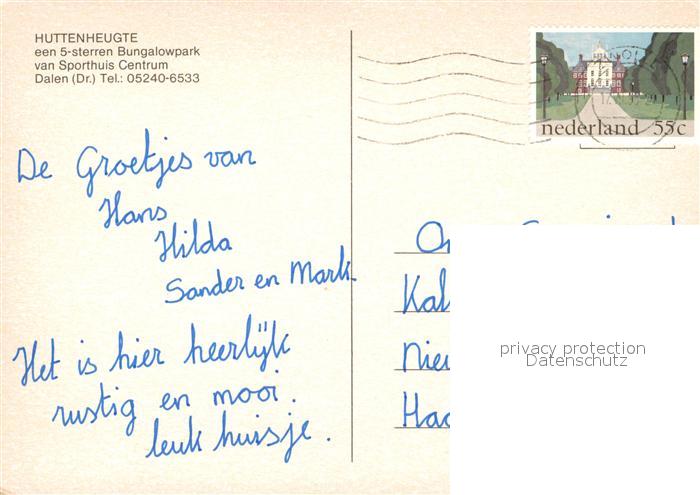 HUTTENHEUGTE
een 5-sterren Bungalowpark
van Sporthuis Centrum
Dalen (Dr.) Tel.: 05240-6533
nederland 55c
De Groetjes van
Hans
Hilda
Sander en Mark
Het is hier heerlijk
rustig en mooi.
leuk huisje.
privacy protection
Datenschutz